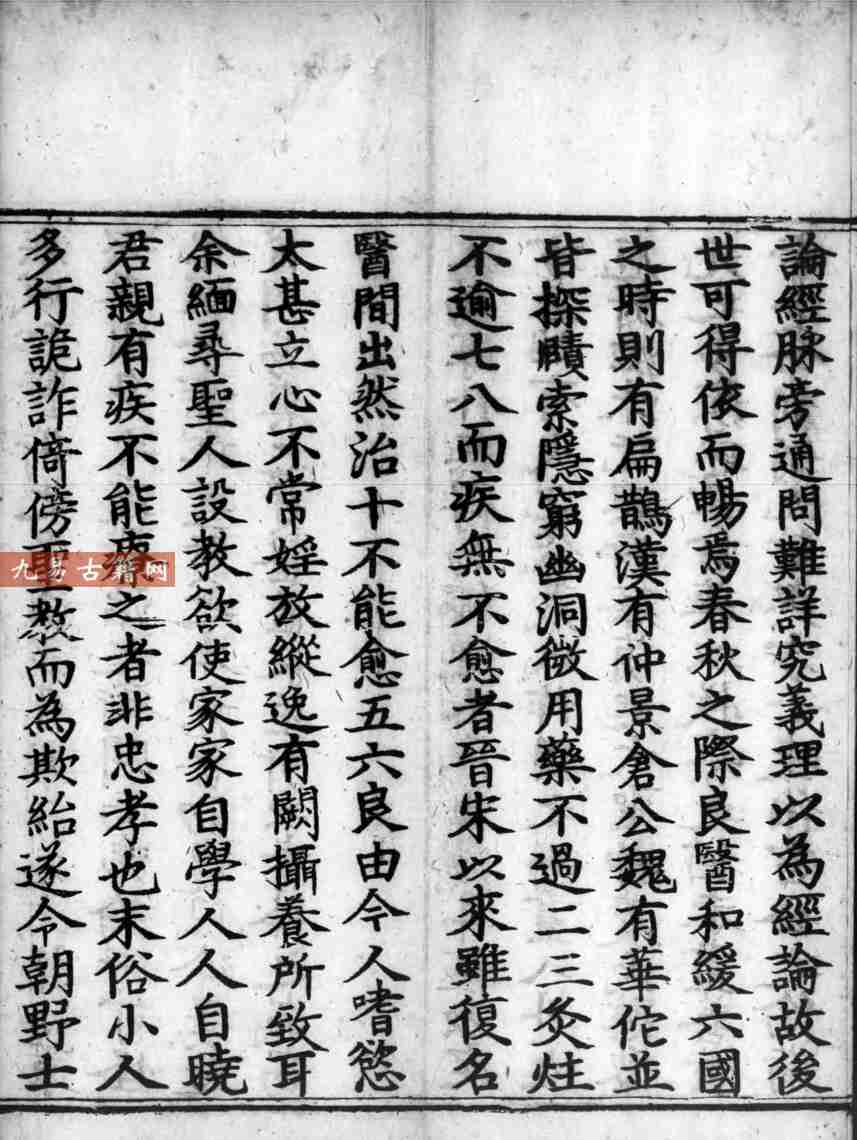 論經脉旁通問難詳究義理以為經論故後
世可得依而暢焉春秋之際良醫和緩六國
之時則有扁鵲漢有仲景倉公魏有華佗並
皆探賾索隱窮幽洞微用藥不過二三灸炷
不逾七八而疾無不愈者晉宋以來雖復名
醫間出然治十不能愈五六良由今人嗜慾
太甚立心不常婬放縱逸有闕攝養所致耳
余緬尋聖人設教欲使家家自學人人自曉
君親有疾不能療之者非忠孝也末俗小人
多行詭詐倚傍聖教而為欺紿遂令朝野士
九易古籍网